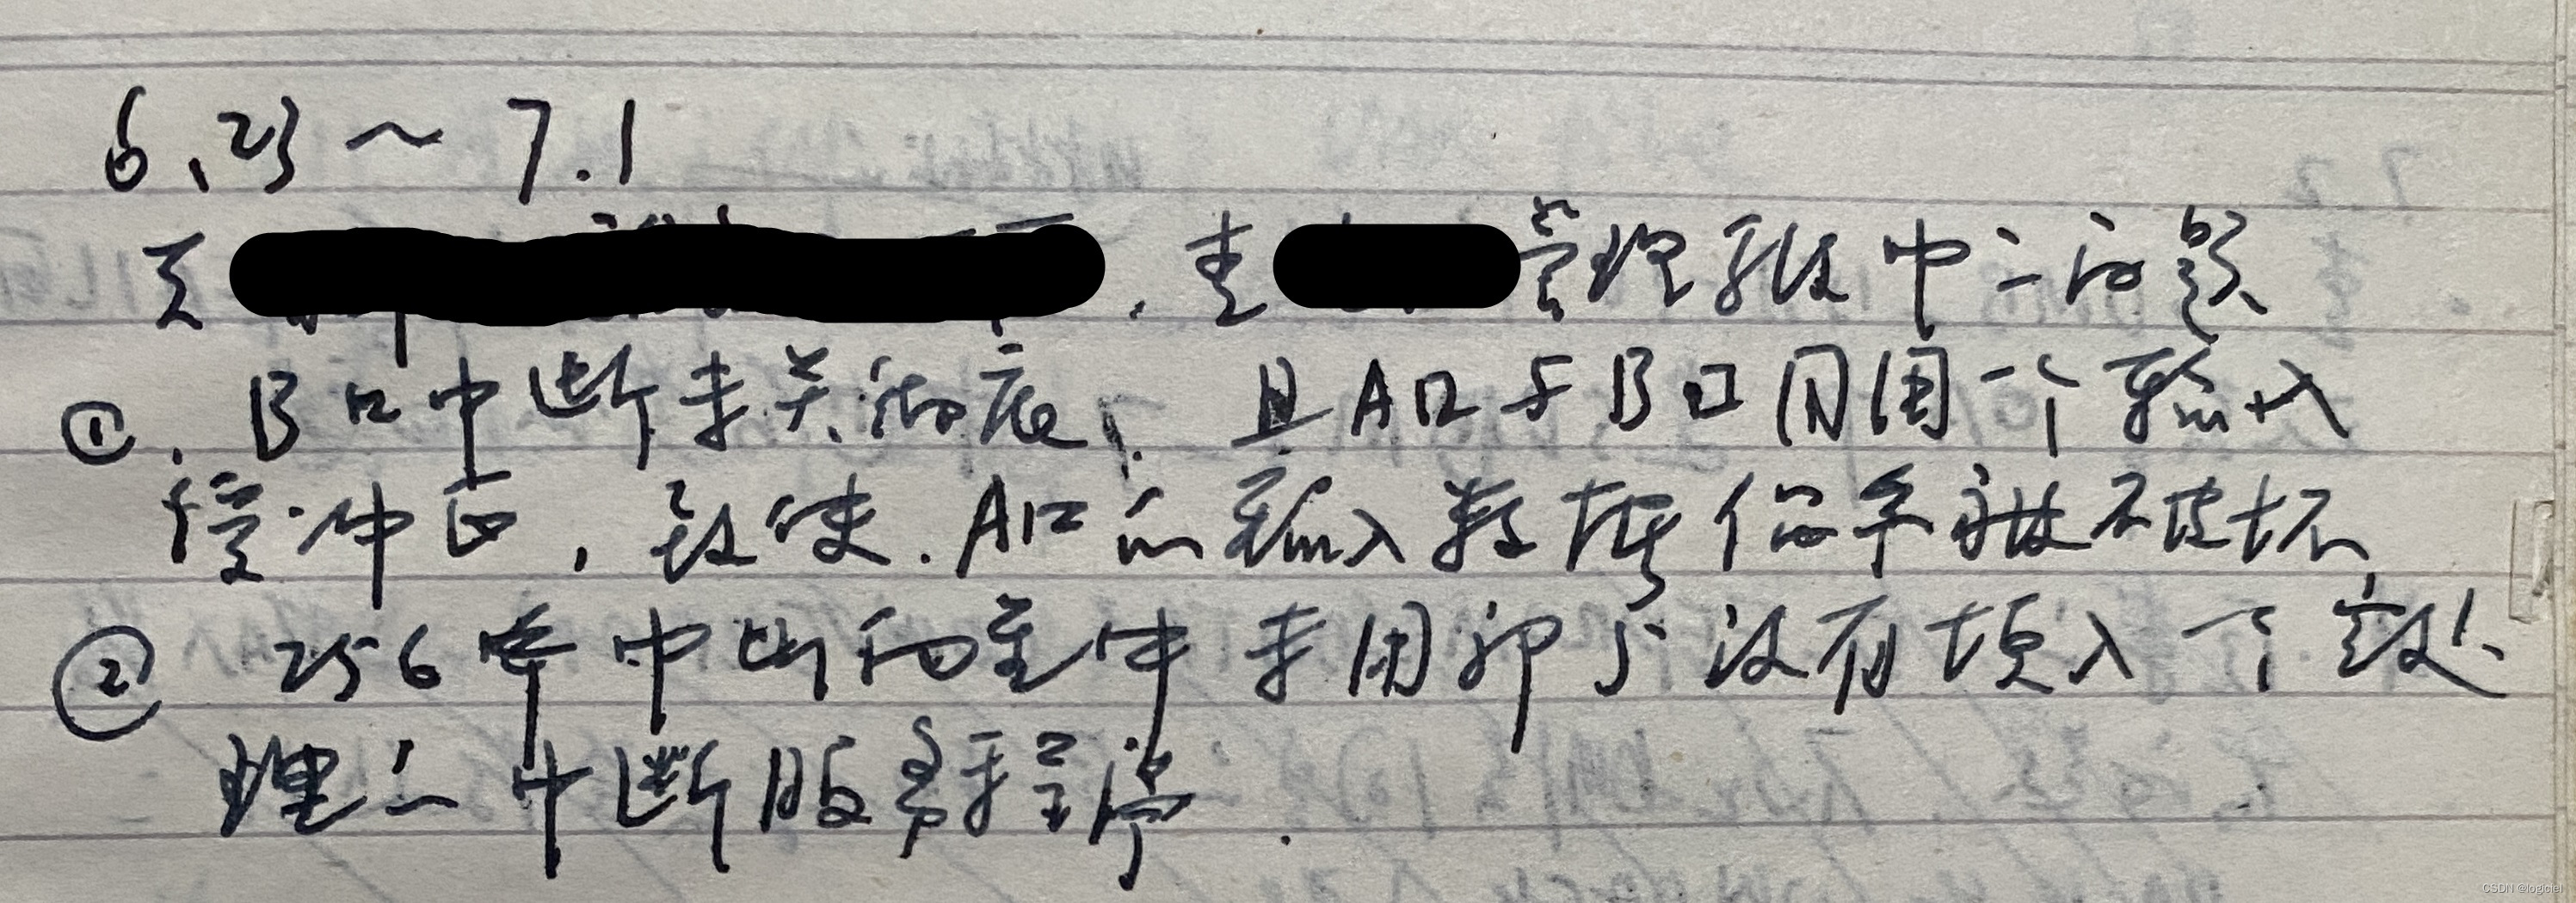 6.23~7.1
管理软中之问题
①. B口中断未关彻底、且A口与B口同用一个输入
缓冲区,致使.A口的输入数据保存被破坏,
② 256个中断向量中未用部分没有填入一个空处
理之中断服务程序.
CSDN @logiciel